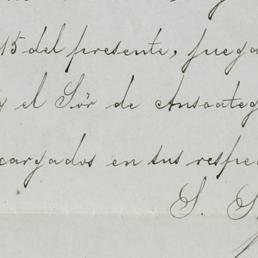 15 del presente, juega
y el Sör de Ansoateg
cargados en sus respe
S. S.